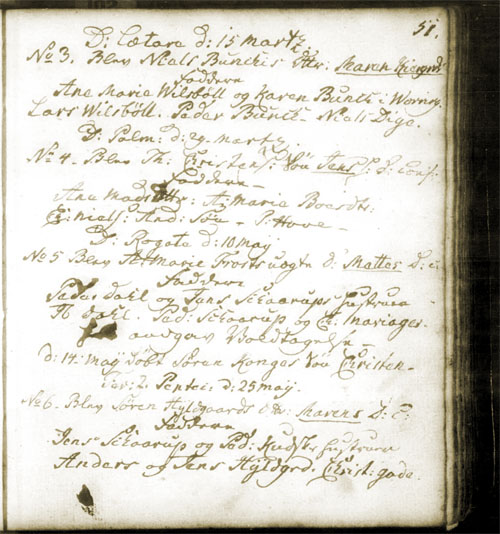 51.
D: Lætare d: 15 Martz
No 3. Blev Niels Bunchis dttr: Maren
Faddere
Ane Marie Wilsböll og Karen Bunch i
Lars Wilsböll. Peder Bunch - Niels Digo.
D: Palm: d: 29 Martz
No 4 - Blev Th: Christens: Søn Jens D: Conf:
Faddere -
Ane Mads dttr: A: Marie Boesdtr:
Niels: And: Søn - P: Hove -
D: Rogate d: 10 Maij
No 5 Blev A: Marie d: Mattes D: C:
Faddere
Dahl og Jens Schaarups Hustrue -
Dahl. Ped: Schaarup og Mariager.
Voldtagelse -
d: 14: Maij döbt Søren Kongos Søn Christen -
Fer: 2. Pentec: d: 25 Maij.
No 6. Blev Søren Hyldgaards dttr: Marens D: C:
Faddere
Jens Schaarup og Ped: Hustruer
Anders og Jens Hyldgrd: Christ: gade.